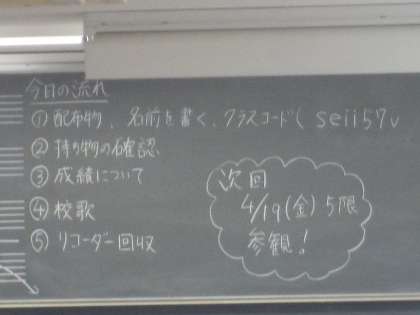 今日の流れ
① 配布物、名前を書く、クラスコード( seii57v
② 持ち物の確認
③ 成績について
④ 校歌
⑤ リコーダー回収
次回
4/19(金) 5限
参観!